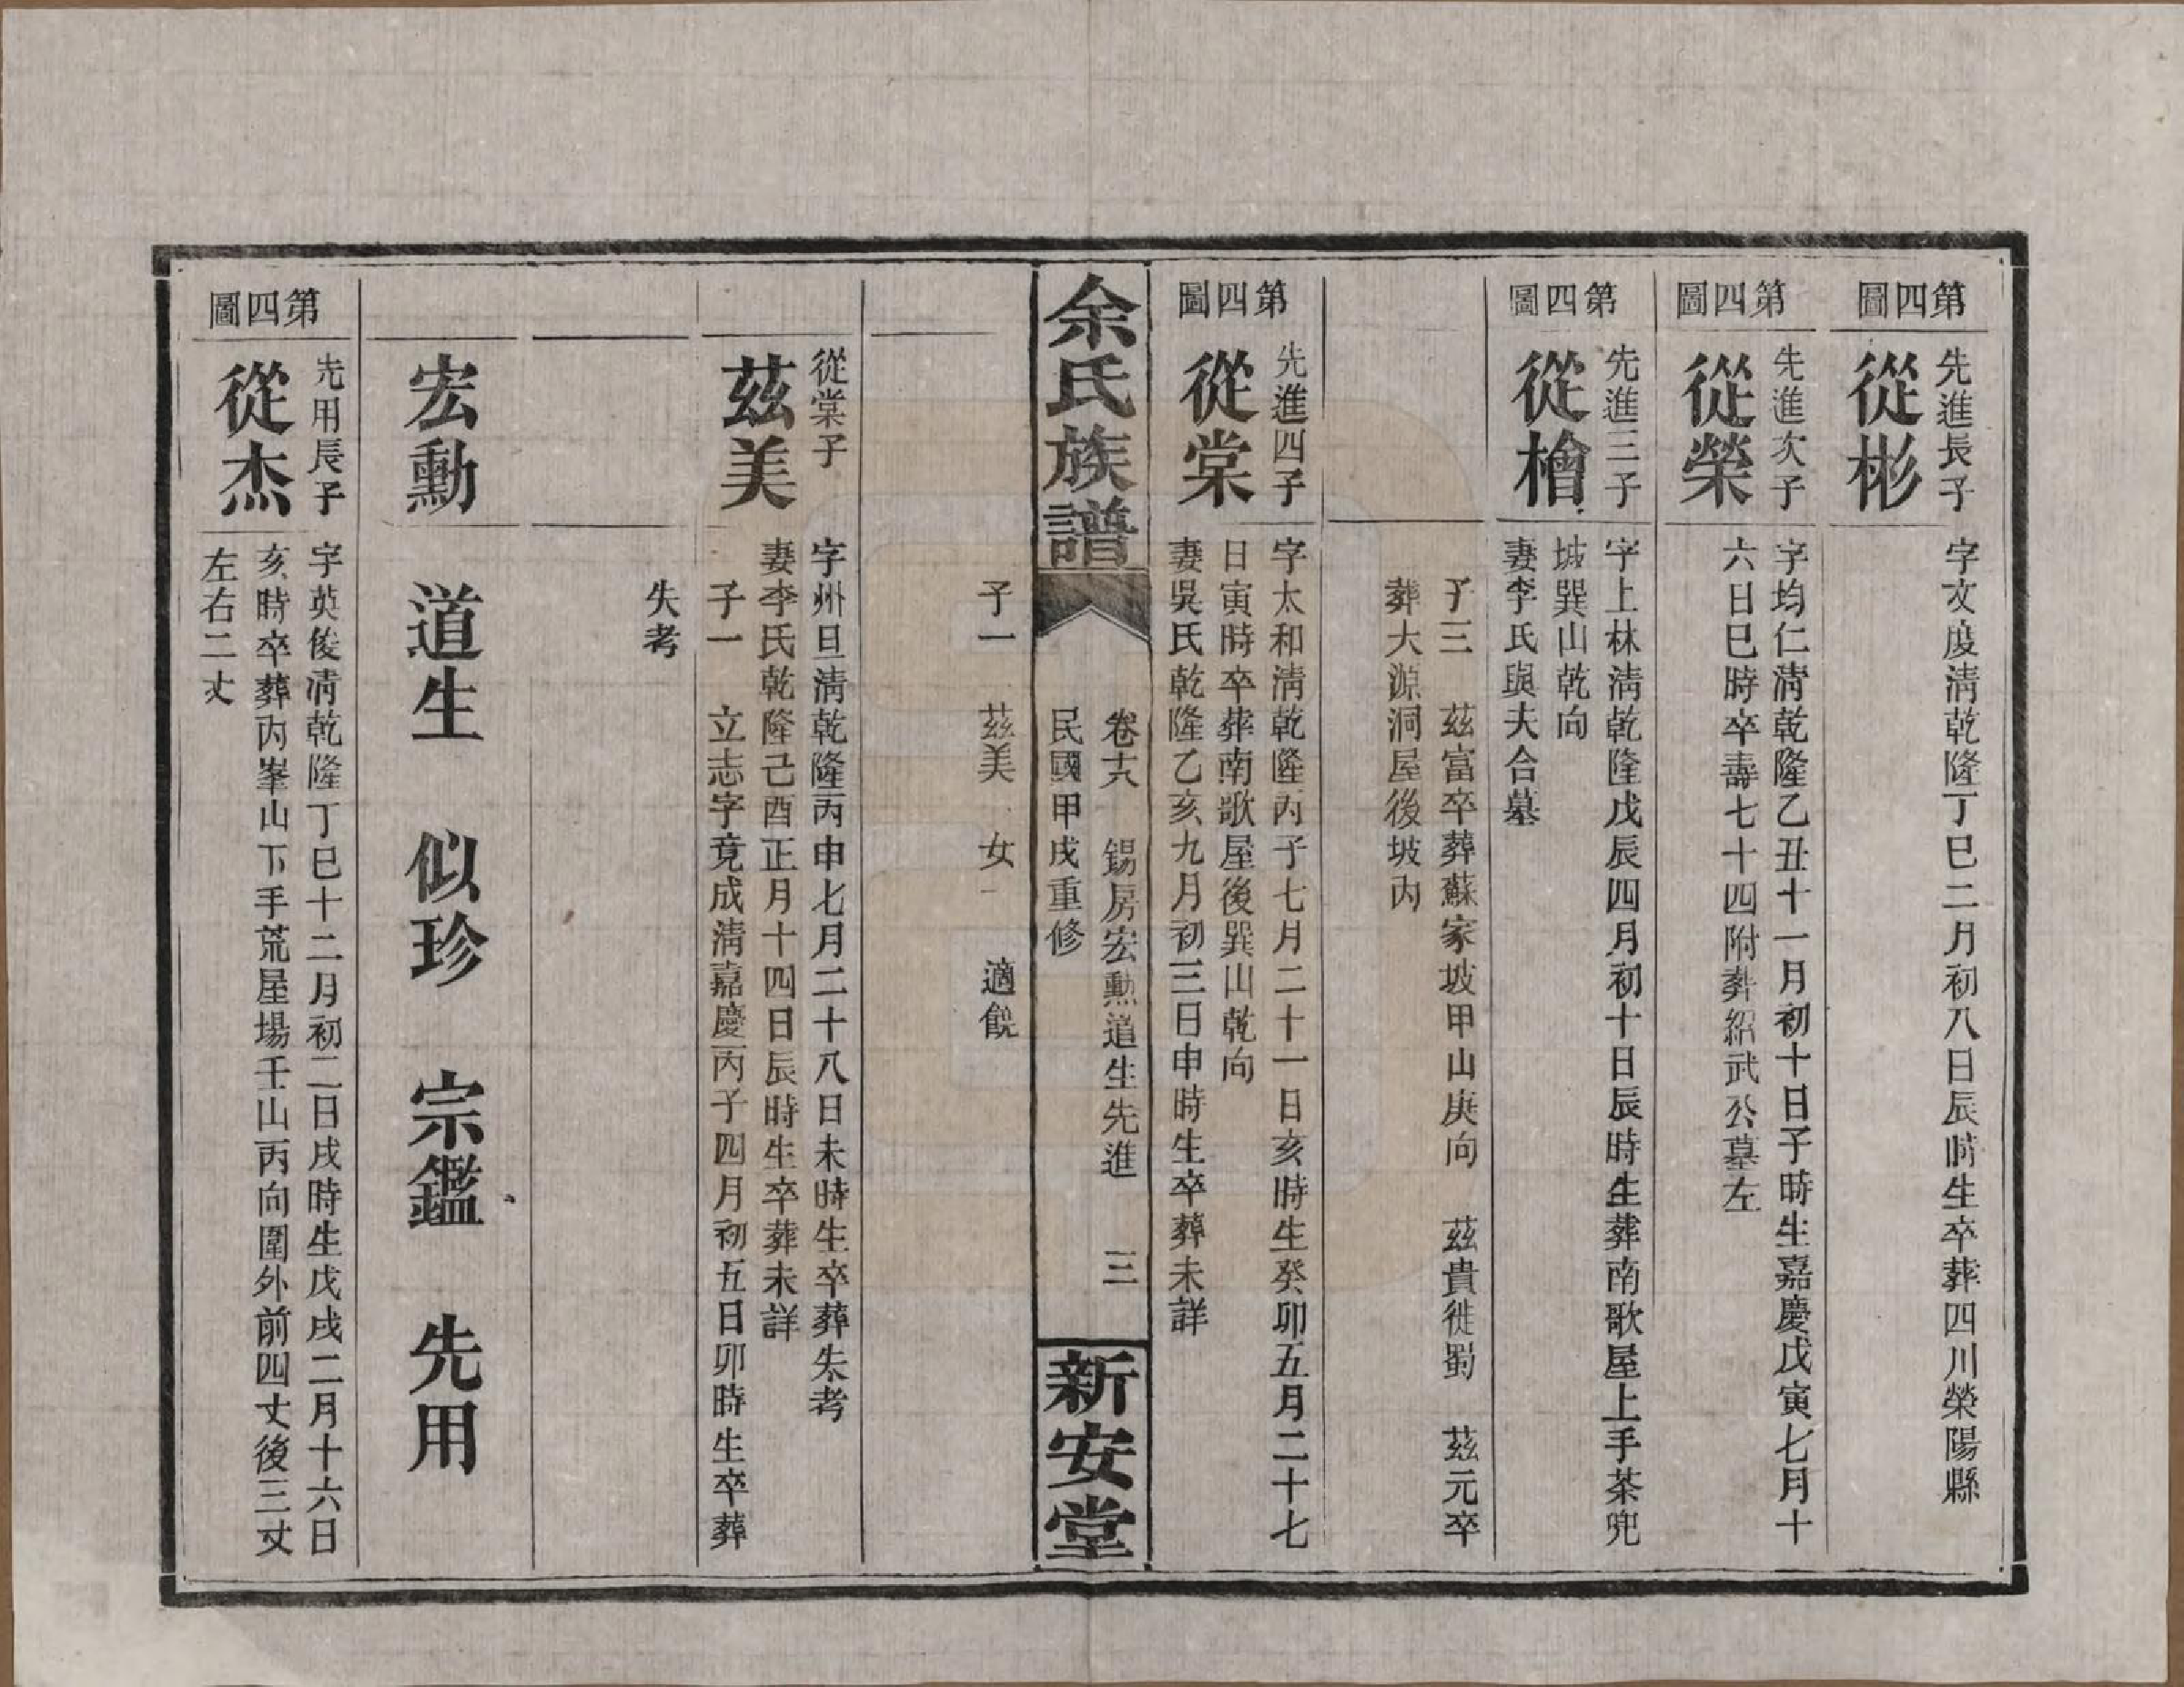 第四圖
先進長子
從彬
字文度清乾隆丁巳二月初八日辰時生卒葬四川榮陽縣
第四圖
先進次子
從榮
字均仁清乾隆乙丑十一月初十日子時生嘉慶戊寅七月十
六日巳時卒壽七十四附葬紹武公墓左
第四圖
先進三子
從檜
字上林清乾隆戊辰四月初十日辰時生葬南歌屋上手茶兜
坡巽山乾向
妻李氏與夫合墓
子三 茲富卒葬蘇家坡甲山庚向 茲貴徙蜀 茲元卒
葬大源洞屋後坡內
第四圖
先進四子
從棠
字太和清乾隆丙子七月二十一日亥時生癸卯五月二十七
日寅時卒葬南歌屋後巽山乾向
妻吳氏乾隆乙亥九月初三日申時生卒葬未詳
余氏族譜
卷十六 錫房宏勳道生先進 三
民國甲戌重修
新安堂
子一 茲美 女一 適饒
從棠子
茲美
字州旦清乾隆丙申七月二十八日未時生卒葬失考
妻李氏乾隆己酉正月十四日辰時生卒葬未詳
子一 立志字竟成清嘉慶丙子四月初五日卯時生卒葬
失考
宏勳 道生 似珍 宗鑑 先用
第四圖
先用長子
從杰
字英俊清乾隆丁巳十二月初二日戌時生戊戌二月十六日
亥時卒葬丙峯山下手荒屋場壬山丙向圍外前四丈後三丈
左右二丈